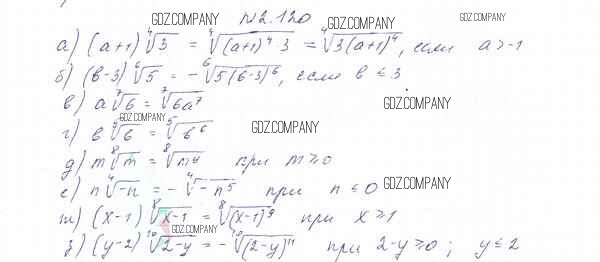 GDZ.COMPANY №2.120 GDZ.COMPANY GDZ.COMPANY
а) (a+1) ⁴√3 = ⁴√((a+1)⁴·3) = ⁴√(3(a+1)⁴), если a>-1
б) (b-3) ⁶√5 = -⁶√(5(b-3)⁶), если b≤3
в) a ⁷√6 = ⁷√(6a⁷) GDZ.COMPANY
GDZ.COMPANY
г) b ⁵√b = ⁵√(b⁶) GDZ.COMPANY
д) m ⁸√m = ⁸√(m⁹) при m≥0
е) n ⁴√(-n) = -⁴√(-n⁵) при n≤0 GDZ.COMPANY
ж) (x-1) ⁸√(x-1) = ⁸√((x-1)⁹) при x≥1
GDZ.COMPANY
з) (y-2) ¹⁰√(2-y) = -¹⁰√((2-y)¹¹) при 2-y≥0; y≤2 GDZ.COMPANY